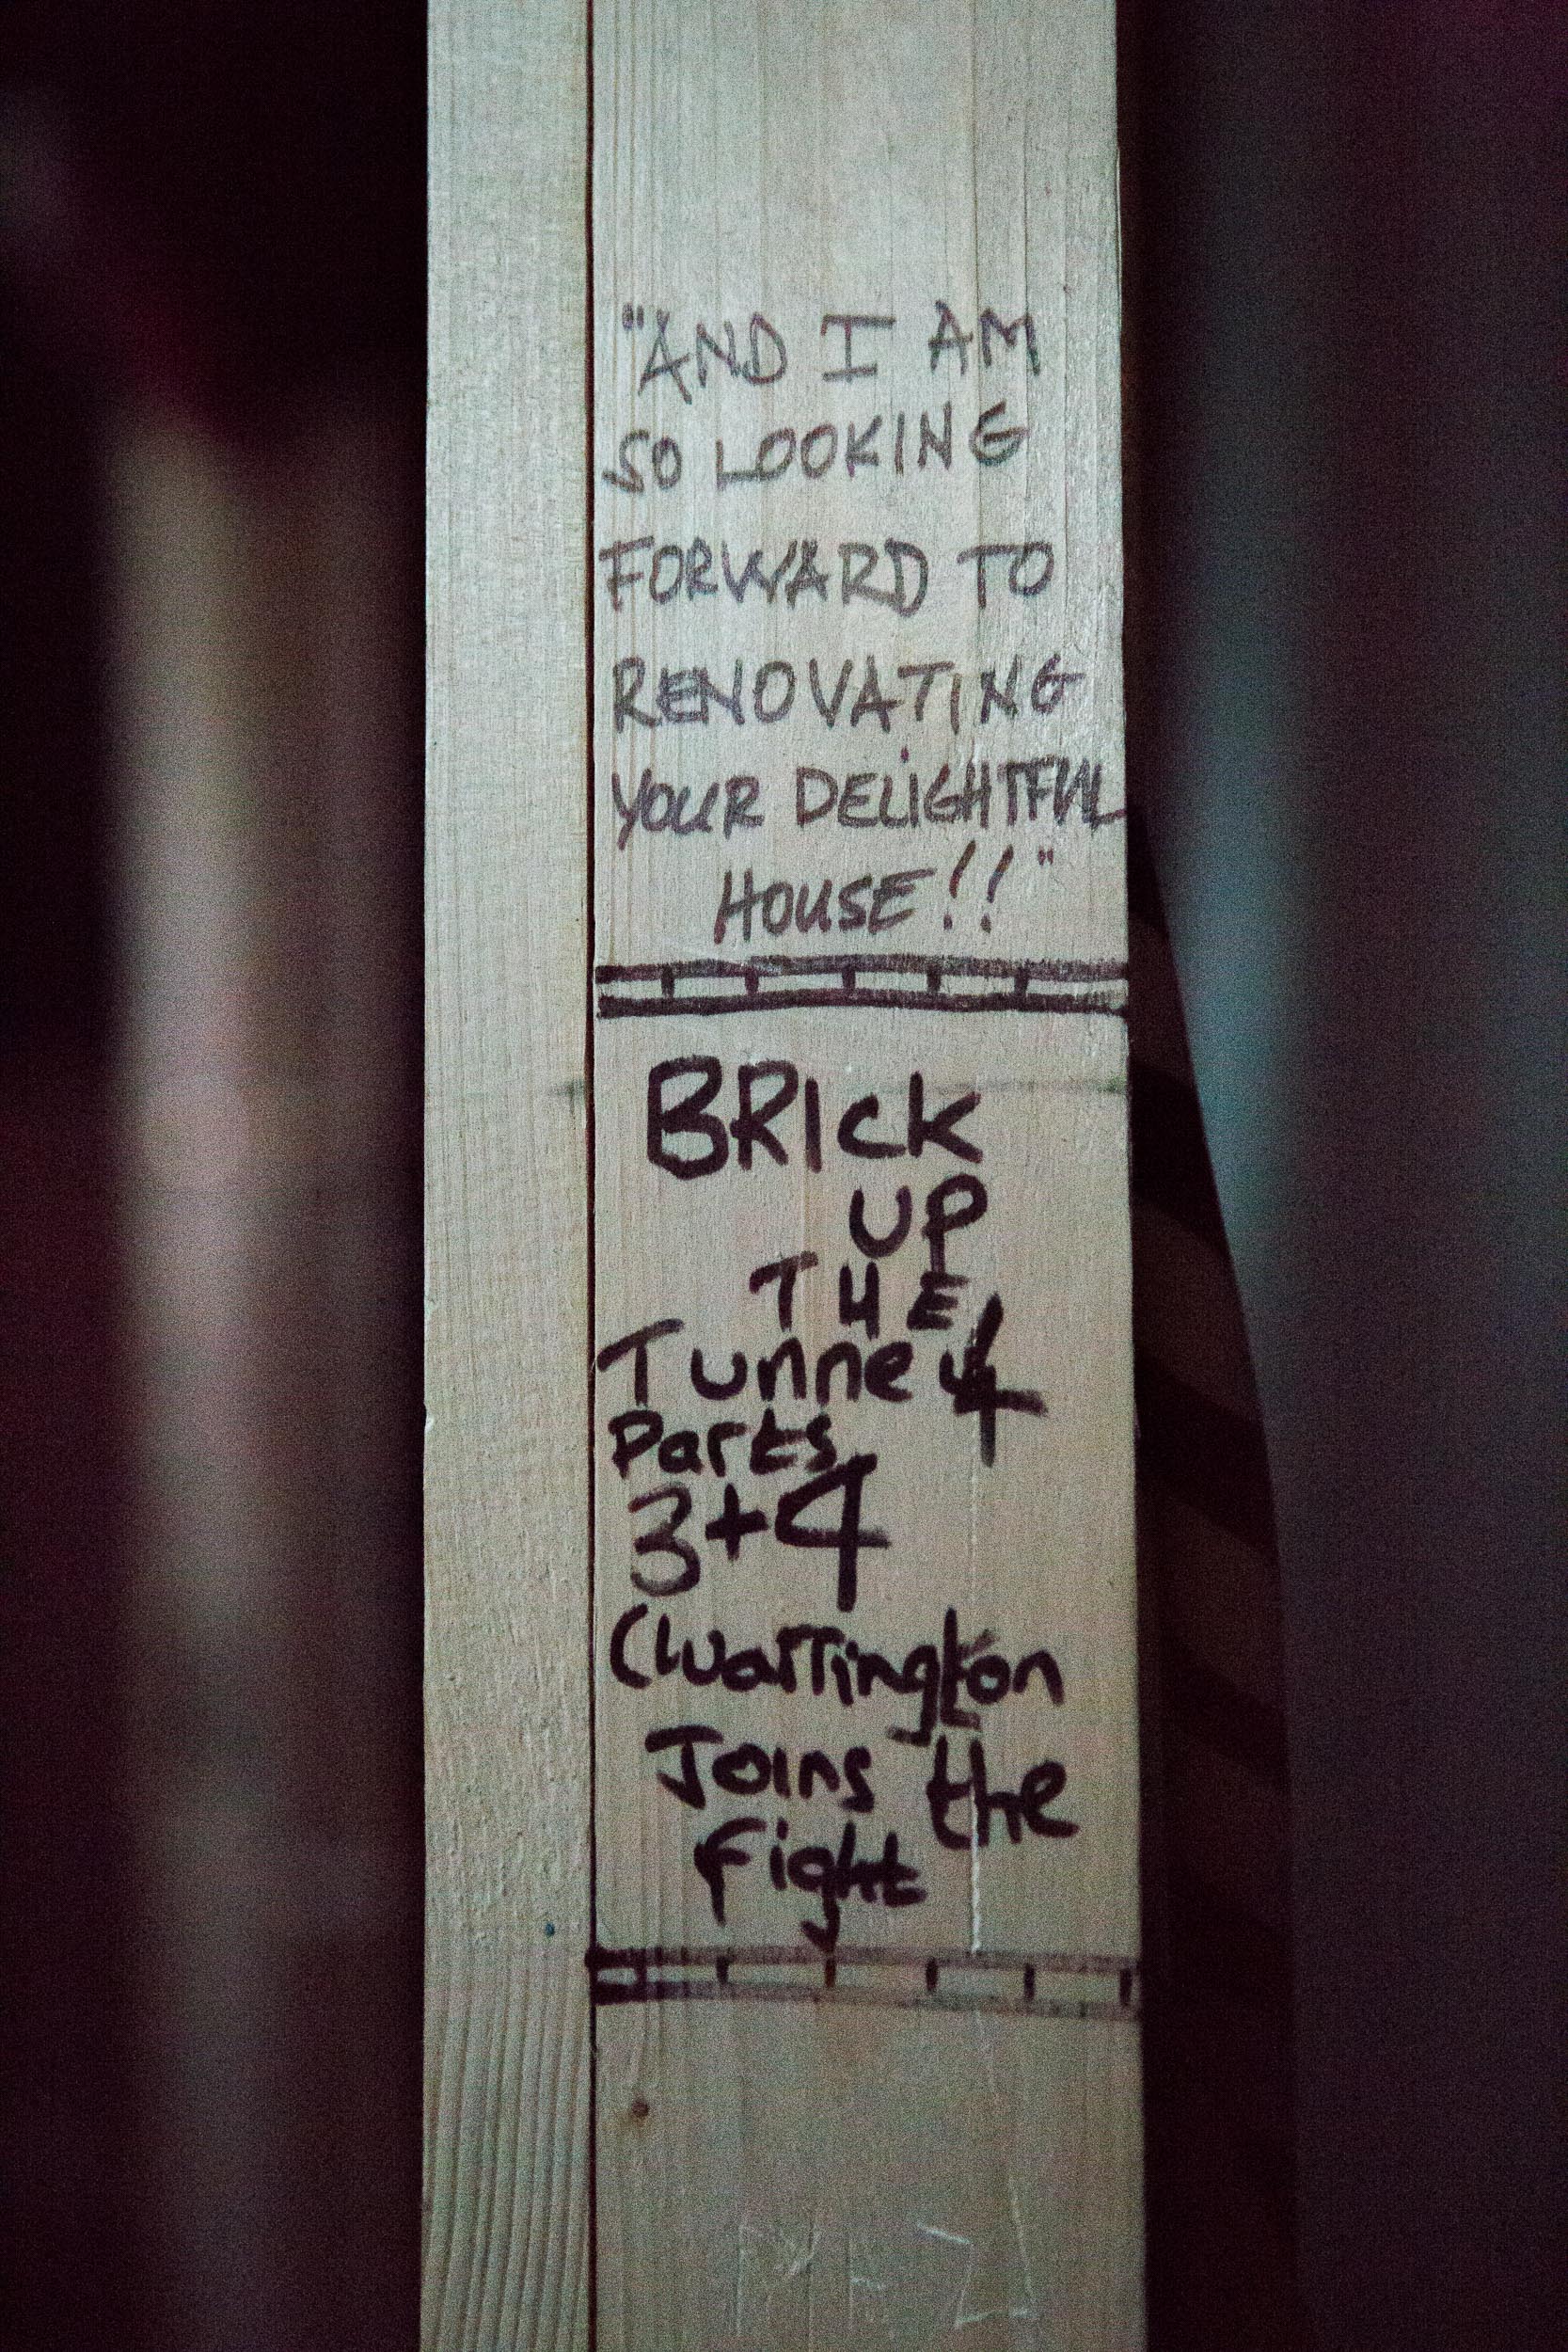 "AND I AM
SO LOOKING
FORWARD TO
RENOVATING
YOUR DELIGHTFUL
HOUSE!!"
BRIck
UP
THE
Tunnel 4
Parts
3+4
(Warrington
Joins the
fight